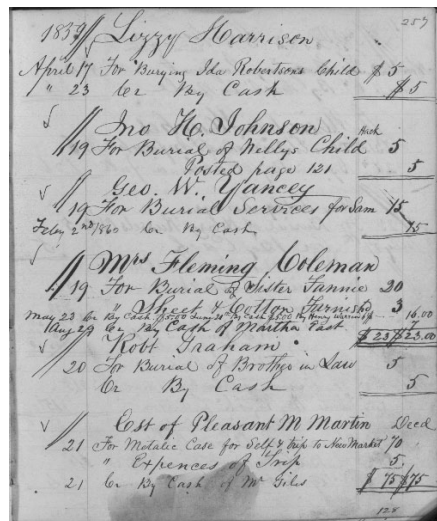 257
1859 Lizzy Harrison
April 17 For Burying Ida Robertsons Child $5
" 23 Cr By Cash $5
Jno H. Johnson
19 For Burial of Nellys Child 5
Posted page 121 5
Geo. W. Yancey
19 For Burial Services for Sam 15
Feby 2nd 1860 Cr By Cash 15
Mrs Fleming Coleman
19 For Burial of Sister Fannie 20
" Sheet & Cotton Furnishd 3
May 23 Cr By Cash $5.00 By Cash $5.00 By Henry 16.00
Aug 29 Cr By Cash of Martha East 7
$23 $23.00
Robt Graham
20 For Burial of Brother in Law 5
Cr By Cash 5
Est of Pleasant M Martin Decd
21 For Metalic Case for Self & Trip to New Market 70
" Expences of Trip 5
21 Cr By Cash of Mr Giles $75 $75